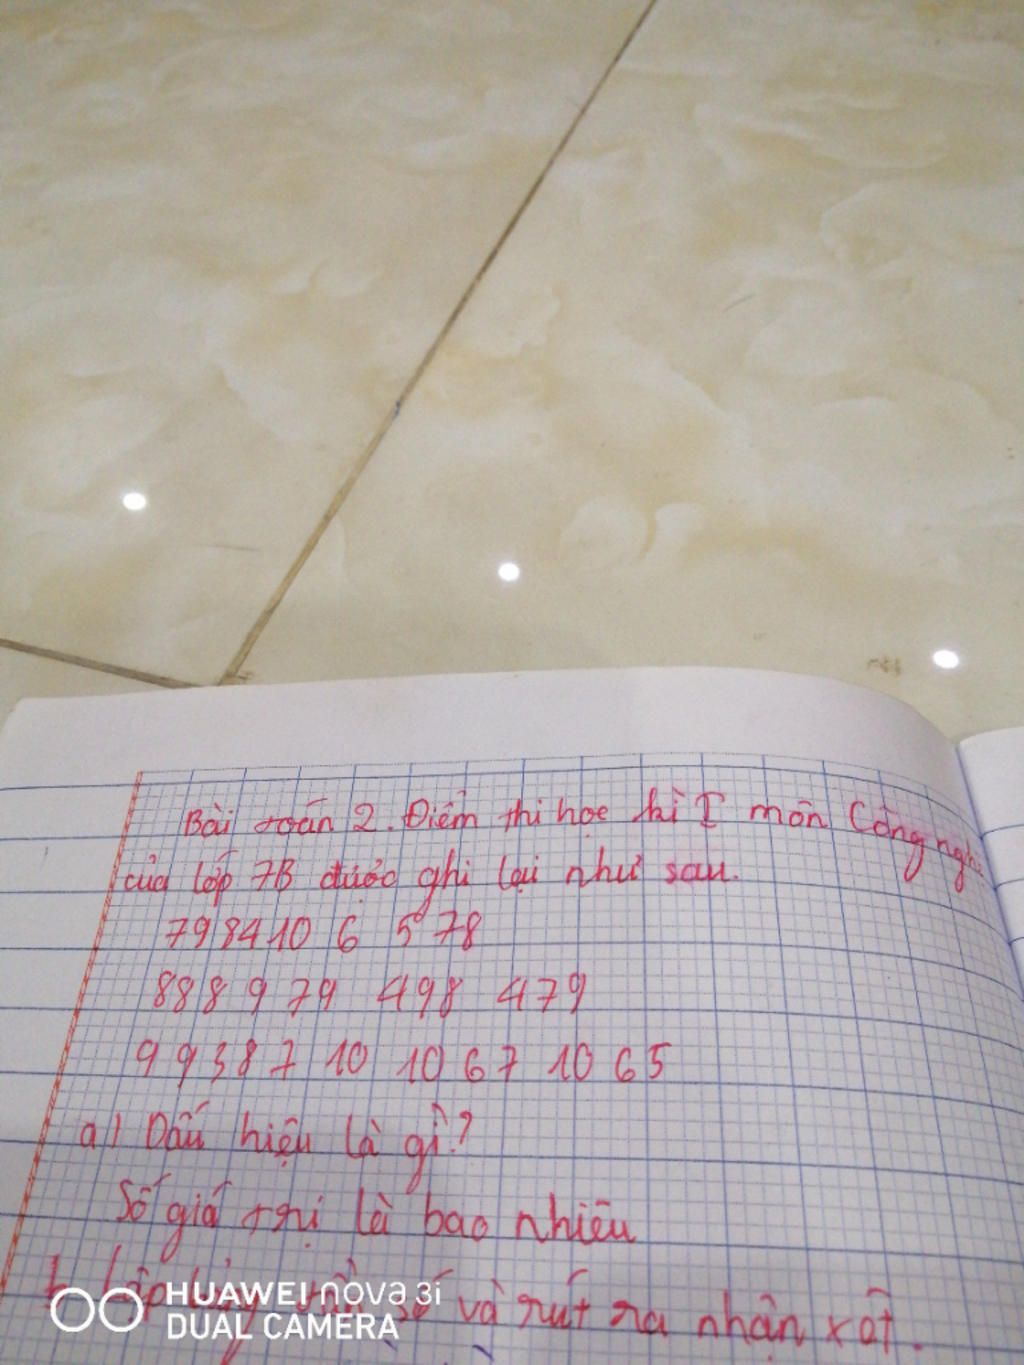 Bài toán 2. Điểm thi học kì I môn Công
của lớp 7B được ghi lại như sau.
7 9 8 4 10 6 5 7 8
8 8 8 9 7 9 4 9 8 4 7 9
9 9 3 8 7 10 10 6 7 10 6 5
a) Dấu hiệu là gì?
Số giá trị là bao nhiêu
số và rút ra nhận xét.
HUAWEI nova 3i
DUAL CAMERA